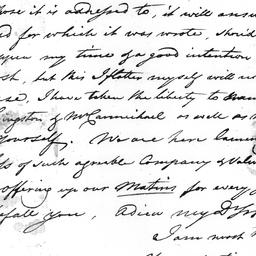 those it is addressed to, it will answ
d for which it was wrote, should
upon my time of a good intention
but this I flatter myself will n
I have taken the liberty to
ingston & McCarmichael as well as
yourself. We are here lame
ss of such agreable Company & Valu
offering up our Matins for every
efall you, adieu my D Sir
I am most